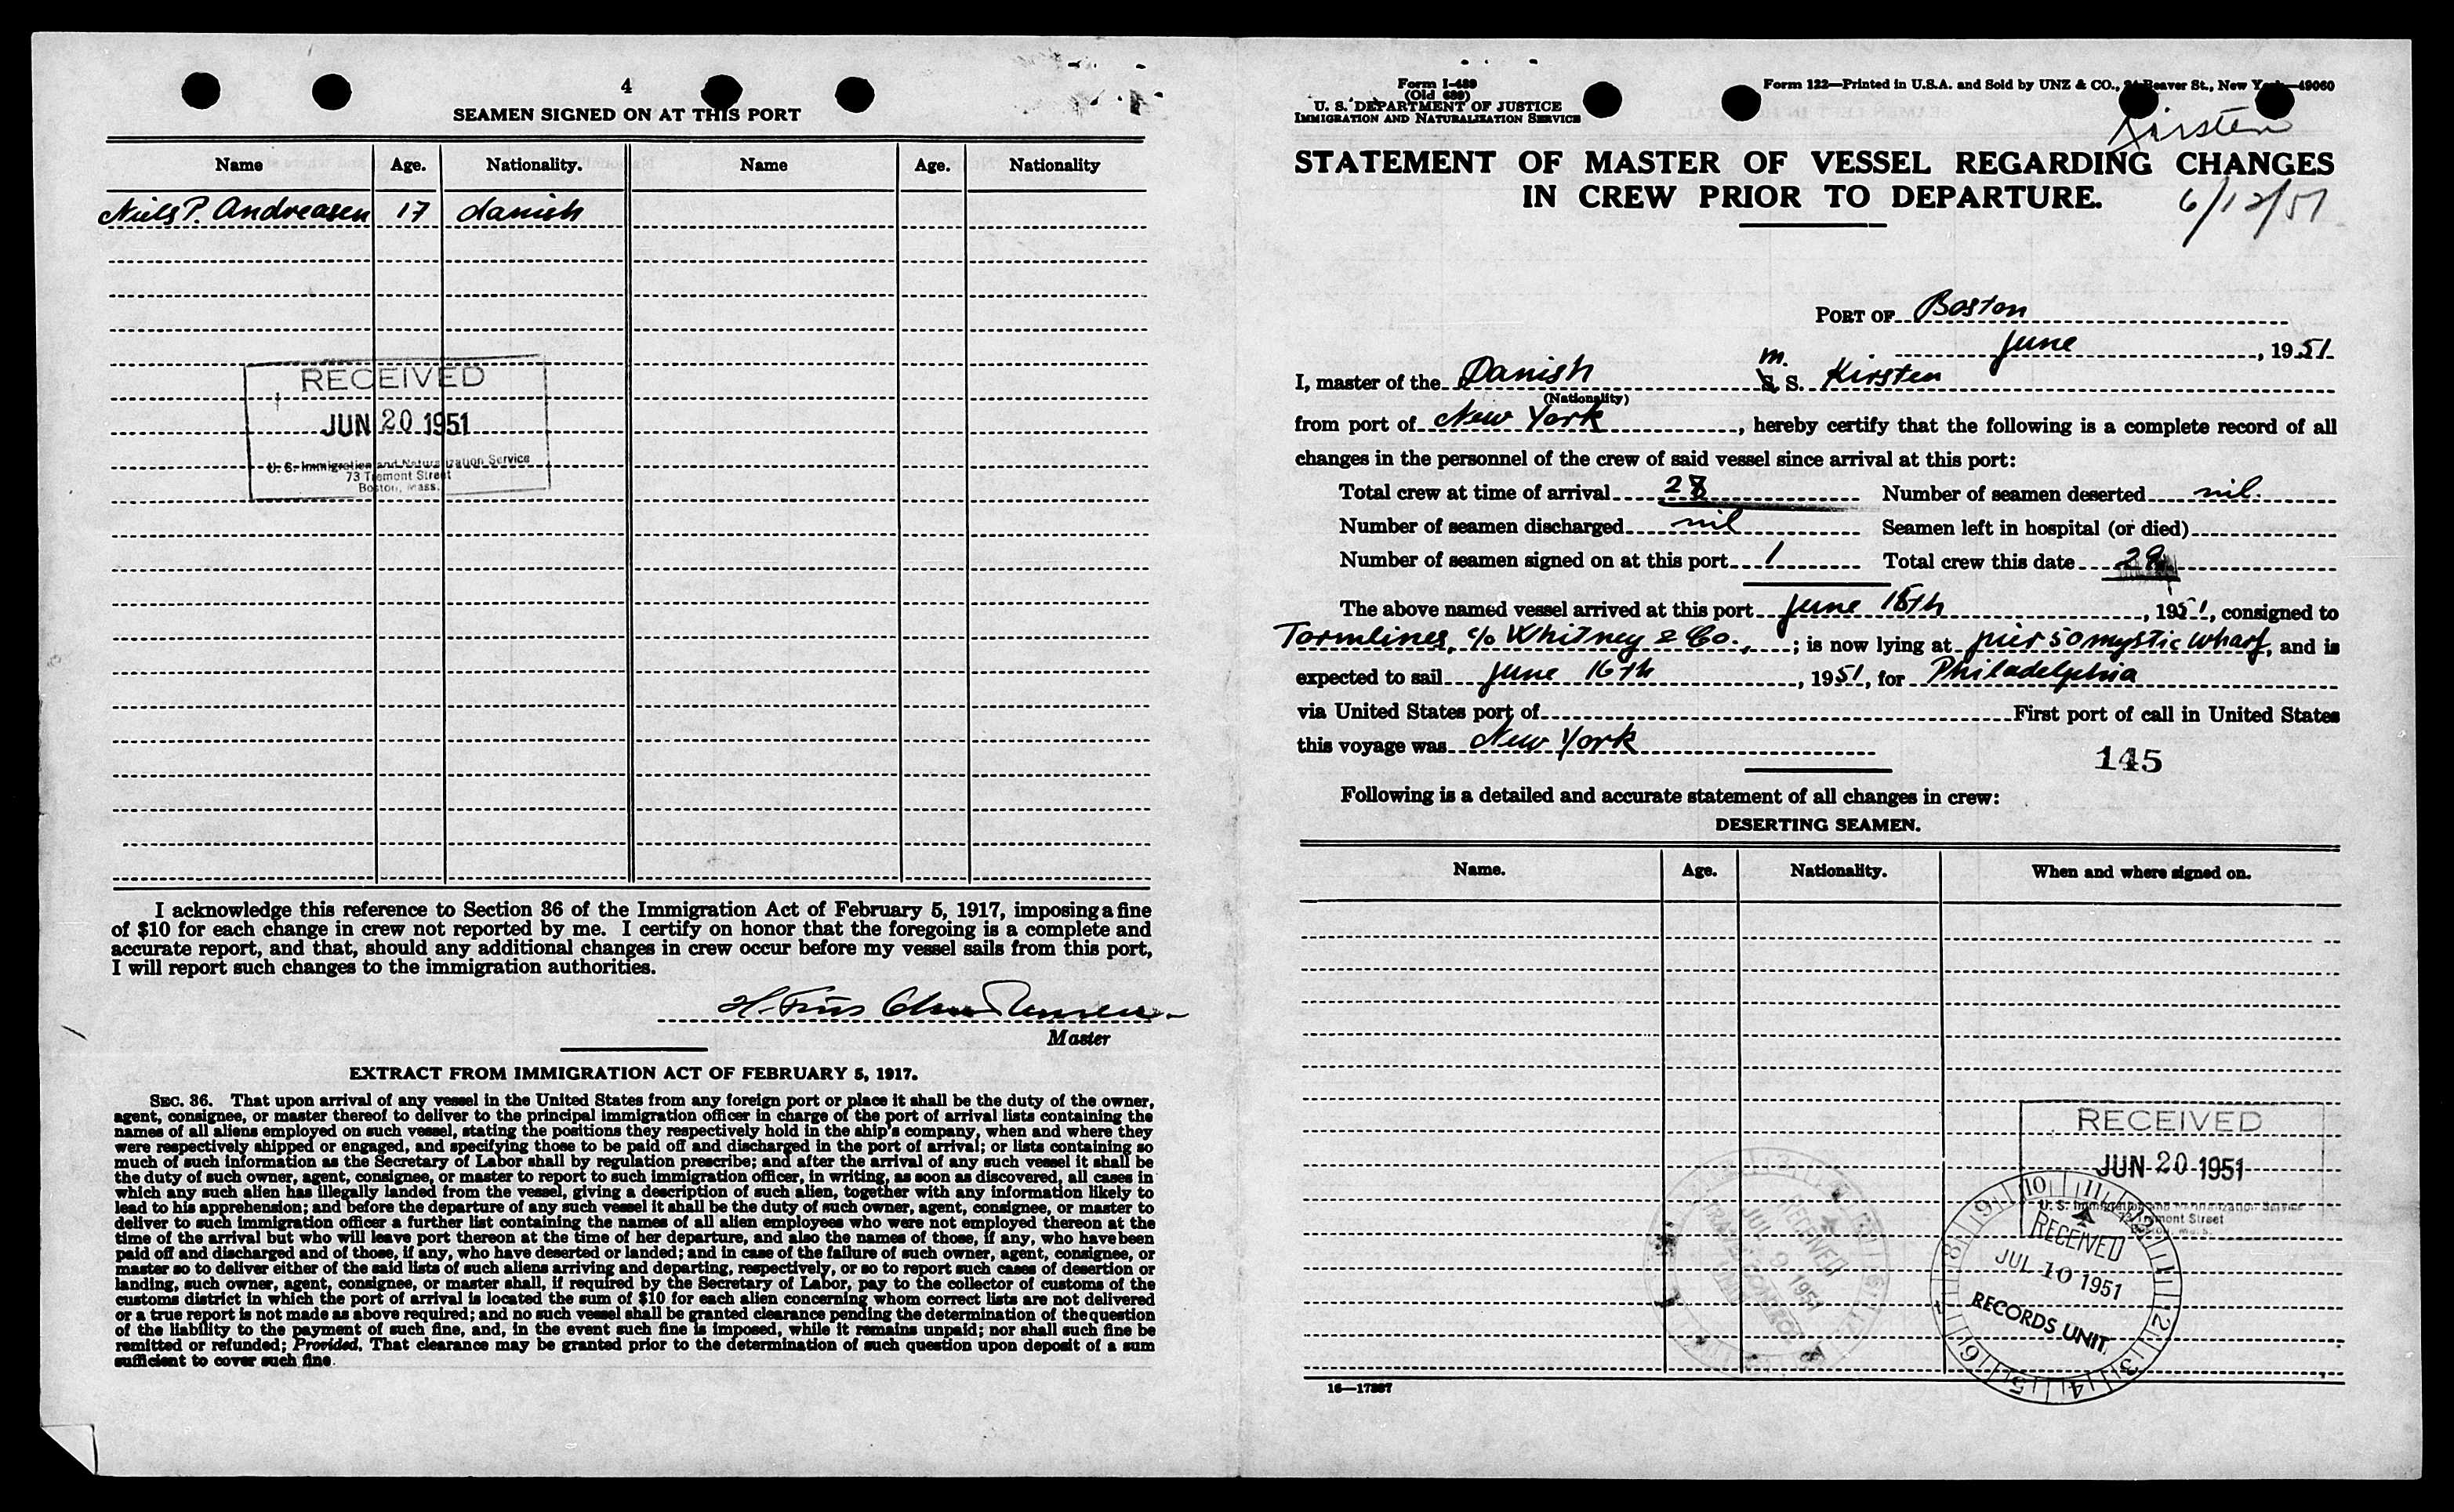 4
SEAMEN SIGNED ON AT THIS PORT
Name Age. Nationality. Name Age. Nationality
Niels P. Andreasen 17 danish
RECEIVED
JUN 20 1951
U. S. Immigration and Naturalization Service
73 Tremont Street
Boston, Mass.
I acknowledge this reference to Section 36 of the Immigration Act of February 5, 1917, imposing a fine
of $10 for each change in crew not reported by me. I certify on honor that the foregoing is a complete and
accurate report, and that, should any additional changes in crew occur before my vessel sails from this port,
I will report such changes to the immigration authorities.
Master
EXTRACT FROM IMMIGRATION ACT OF FEBRUARY 5, 1917.
SEC. 36. That upon arrival of any vessel in the United States from any foreign port or place it shall be the duty of the owner,
agent, consignee, or master thereof to deliver to the principal immigration officer in charge of the port of arrival lists containing the
names of all aliens employed on such vessel, stating the positions they respectively hold in the ship's company, when and where they
were respectively shipped or engaged, and specifying those to be paid off and discharged in the port of arrival; or lists containing so
much of such information as the Secretary of Labor shall by regulation prescribe; and after the arrival of any such vessel it shall be
the duty of such owner, agent, consignee, or master to report to such immigration officer, in writing, as soon as discovered, all cases in
which any such alien has illegally landed from the vessel, giving a description of such alien, together with any information likely to
lead to his apprehension; and before the departure of any such vessel it shall be the duty of such owner, agent, consignee, or master to
deliver to such immigration officer a further list containing the names of all alien employees who were not employed thereon at the
time of the arrival but who will leave port thereon at the time of her departure, and also the names of those, if any, who have been
paid off and discharged and of those, if any, who have deserted or landed; and in case of the failure of such owner, agent, consignee, or
master so to deliver either of the said lists of such aliens arriving and departing, respectively, or so to report such cases of desertion or
landing, such owner, agent, consignee, or master shall, if required by the Secretary of Labor, pay to the collector of customs of the
customs district in which the port of arrival is located the sum of $10 for each alien concerning whom correct lists are not delivered
or a true report is not made as above required; and no such vessel shall be granted clearance pending the determination of the question
of the liability to the payment of such fine, and, in the event such fine is imposed, while it remains unpaid; nor shall such fine be
remitted or refunded; Provided, That clearance may be granted prior to the determination of such question upon deposit of a sum
sufficient to cover such fine.
Form I-489
(Old 689)
U. S. DEPARTMENT OF JUSTICE
IMMIGRATION AND NATURALIZATION SERVICE
Form 122—Printed in U.S.A. and Sold by UNZ & CO., Beaver St., New —49060
Kirsten
STATEMENT OF MASTER OF VESSEL REGARDING CHANGES
IN CREW PRIOR TO DEPARTURE.
6/12/51
PORT OF Boston
June, 1951
I, master of the Danish m. S. S. Kirsten
(Nationality)
from port of New York, hereby certify that the following is a complete record of all
changes in the personnel of the crew of said vessel since arrival at this port:
Total crew at time of arrival 28 Number of seamen deserted nil.
Number of seamen discharged nil Seamen left in hospital (or died)
Number of seamen signed on at this port 1 Total crew this date 29
The above named vessel arrived at this port June 15th, 1951, consigned to
Tormlines, c/o Whitney & Co.,; is now lying at pier 50 mystic wharf, and is
expected to sail June 16th, 1951, for Philadelphia
via United States port of First port of call in United States
this voyage was New York
145
Following is a detailed and accurate statement of all changes in crew:
DESERTING SEAMEN.
Name. Age. Nationality. When and where signed on.
RECEIVED
JUN 20 1951
U. S. Immigration and Naturalization Service
Tremont Street
RECEIVED
JUL 9 1951
RECEIVED
JUL 10 1951
RECORDS UNIT
16—17397